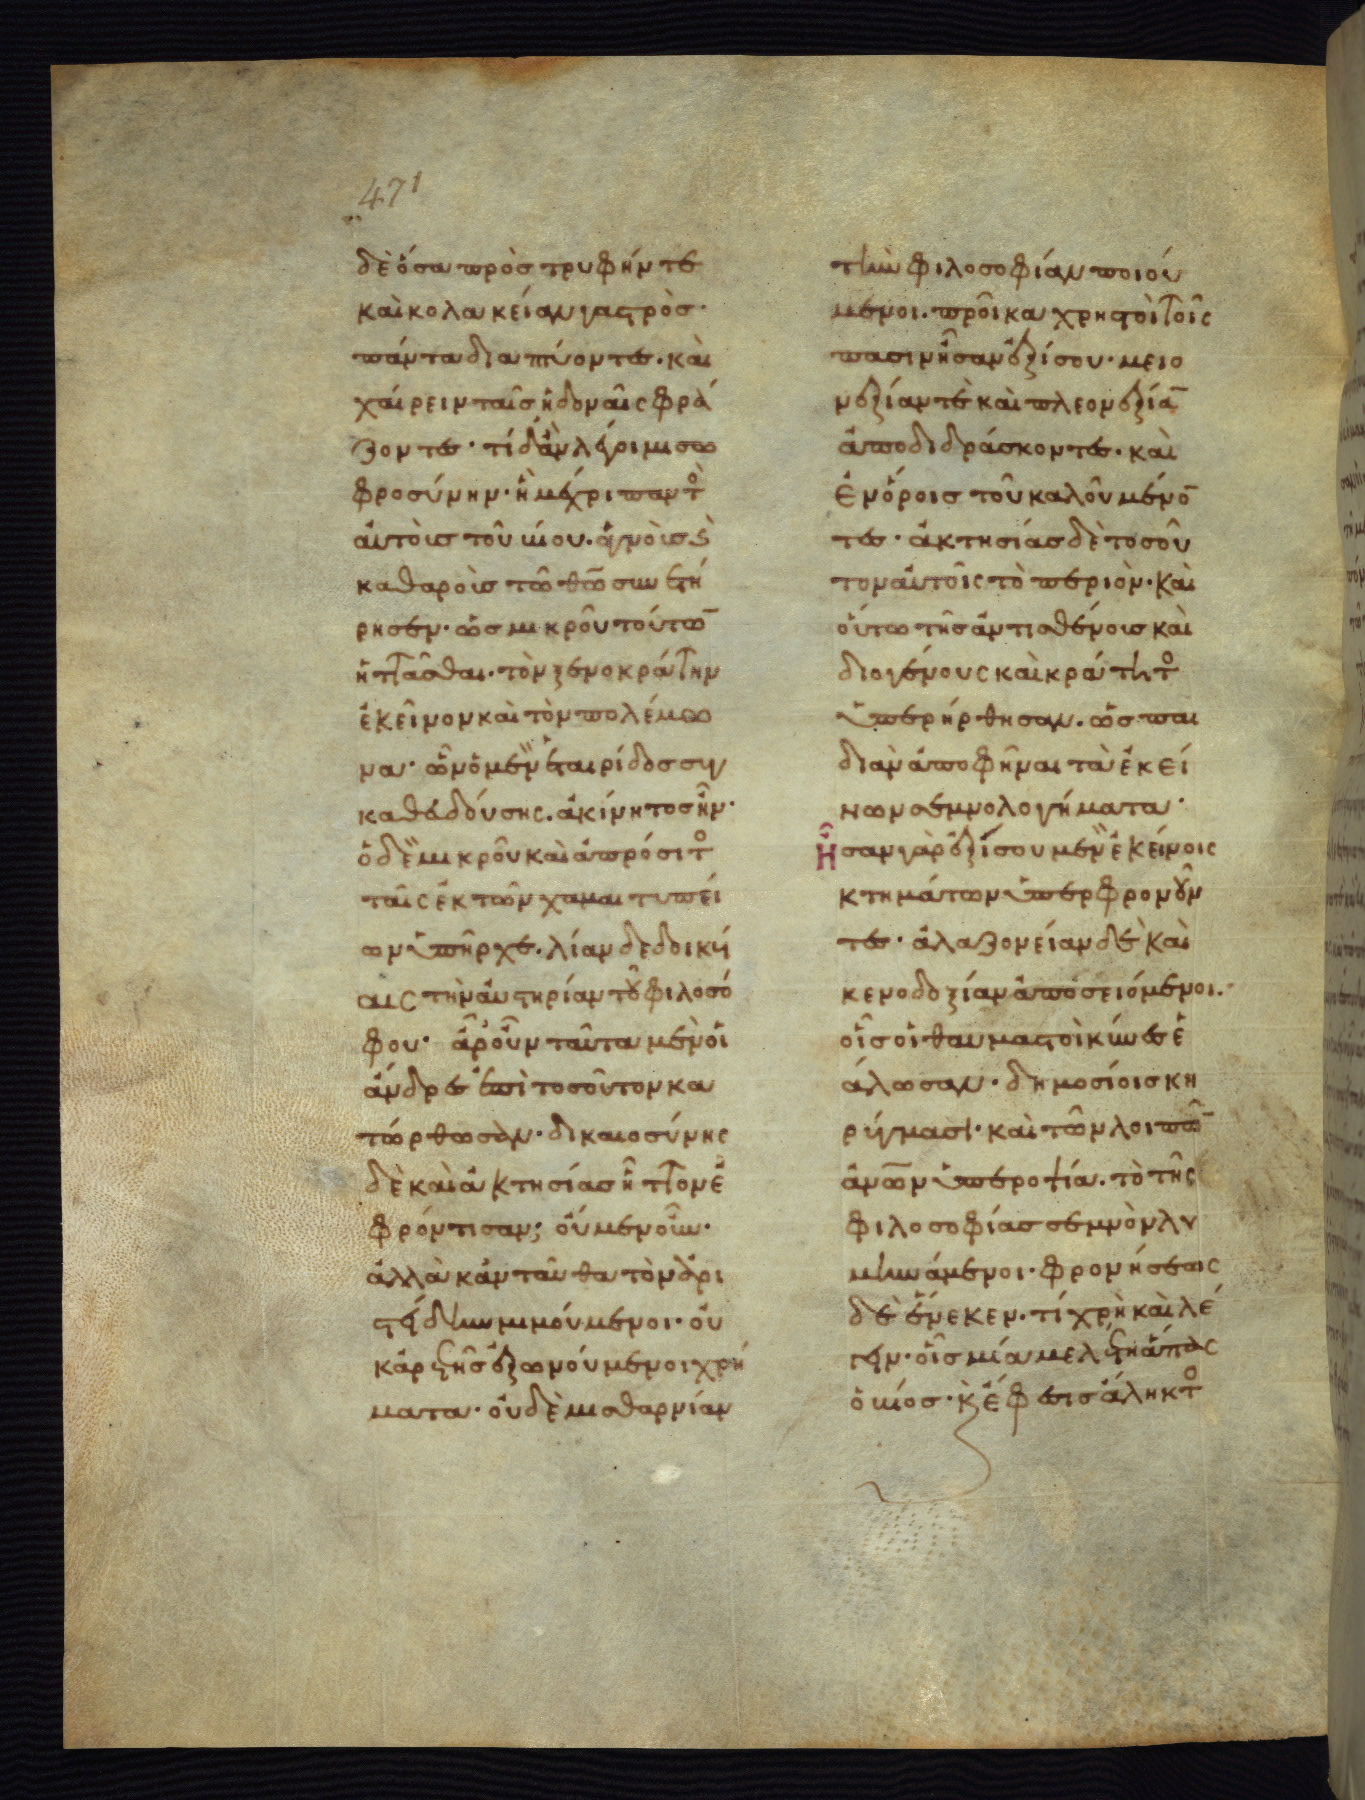 471
δὲ ὅσα πρὸς τρυφήν τε
καὶ κολακείαν γαστρὸσ·
πάντα διαπτύοντες. καὶ
χαίρειν ταῖσ ἡδοναῖς φρά
ζοντες· τί δἂν λέγοιμι σω
φροσύνην· ἣ μέχρι παντὸ
αὐτοῖσ τοῦ βίου. ἁγνοῖσ κ
καθαροῖσ τῶ θῶ συνετή
ρησεν· ὡσ μικροῦ τούτω
ἡττᾶσθαι. τὸν ξενοκράτην
ἐκεῖνον καὶ τὸν πολέμω
να· ὧν ὁ μὲν ἑταιρίδοσ συγ
καθευδούσης. ἀκίνητοσ ἦν·
ὁ δὲ μικροῦ καὶ ἀπρόσιτο
ταῖς ἐκ τῶν χαμαιτυπεί
ων ὑπῆρχε. λίαν δεδοικυί
αις τὴν αὐστηρίαν τοῦ φιλοσό
φου· ἆρ οὖν ταῦτα μὲν οἱ
ἄνδρεσ ἐπὶ τοσοῦτον κα
τώρθωσαν· δικαιοσύνης
δὲ καὶ ἀκτησίασ ἧττον ἐ
φρόντισαν; οὐμενοῦν·
ἀλλὰ κἀνταῦθα τὸν ἀρι
στείδην μιμούμενοι· οὐ
κ ἀρετῆσ ἐξωνούμενοι χρή
ματα· οὐδὲ μισθαρνίαν
τὴν φιλοσοφίαν ποιού
μενοι. προῖκα χρηστοὶ τοῖς
πασιν ἦσαν ἐξίσου· μειο
νεξίαν τὲ καὶ πλεονεξία
ἀποδιδράσκοντεσ. καὶ
ἐν ὅροισ τοῦ καλοῦ μένο
τεσ· ἀκτησίασ δὲ τοσοῦ
τον αὐτοῖς τὸ περιὸν· καὶ
οὕτω τῆσ ἀντισθένουσ καὶ
διογένους καὶ κράτητο
ὑπερήρθησαν. ὡσ παι
διὰν ἀποφῆναι τὰ ἐκεί
νων σεμνολογήματα·
ἦσαν γὰρ ἐξίσου μὲν ἐκείνοις
κτημάτων ὑπερφρονοῦν
τεσ· ἀλαζονείαν δὲ καὶ
κενοδοξίαν ἀποσειόμενοι.
οἷσ οἱ θαυμαστοὶ κύνεσ ἑ
άλωσαν· δημοσίοισ κη
ρύγμασι· καὶ τῶν λοιπῶ
ἀνῶν ὑπεροψία. τὸ τῆς
φιλοσοφίασ σεμνὸν λυ
μηνάμενοι· φρονήσεως
δὲ ἕνεκεν. τί χρὴ καὶ λέ
γειν· οἷσ μία μελέτη ἅπας
ὁ βίοσ· κ ἔφεσισ ἄληκτο